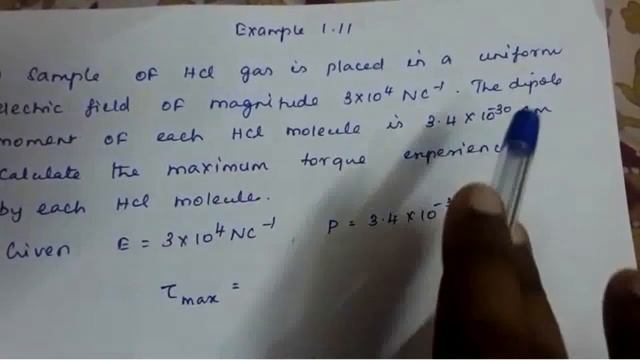 Example 1.11
Sample of HCl gas is placed in a uniform
electric field of magnitude 3×10⁴ NC⁻¹. The dipole
moment of each HCl molecule is 3.4 × 10⁻³⁰ cm
Calculate the maximum torque
by each HCl molecule.
Given E = 3×10⁴ NC⁻¹ P = 3.4×10
τmax =